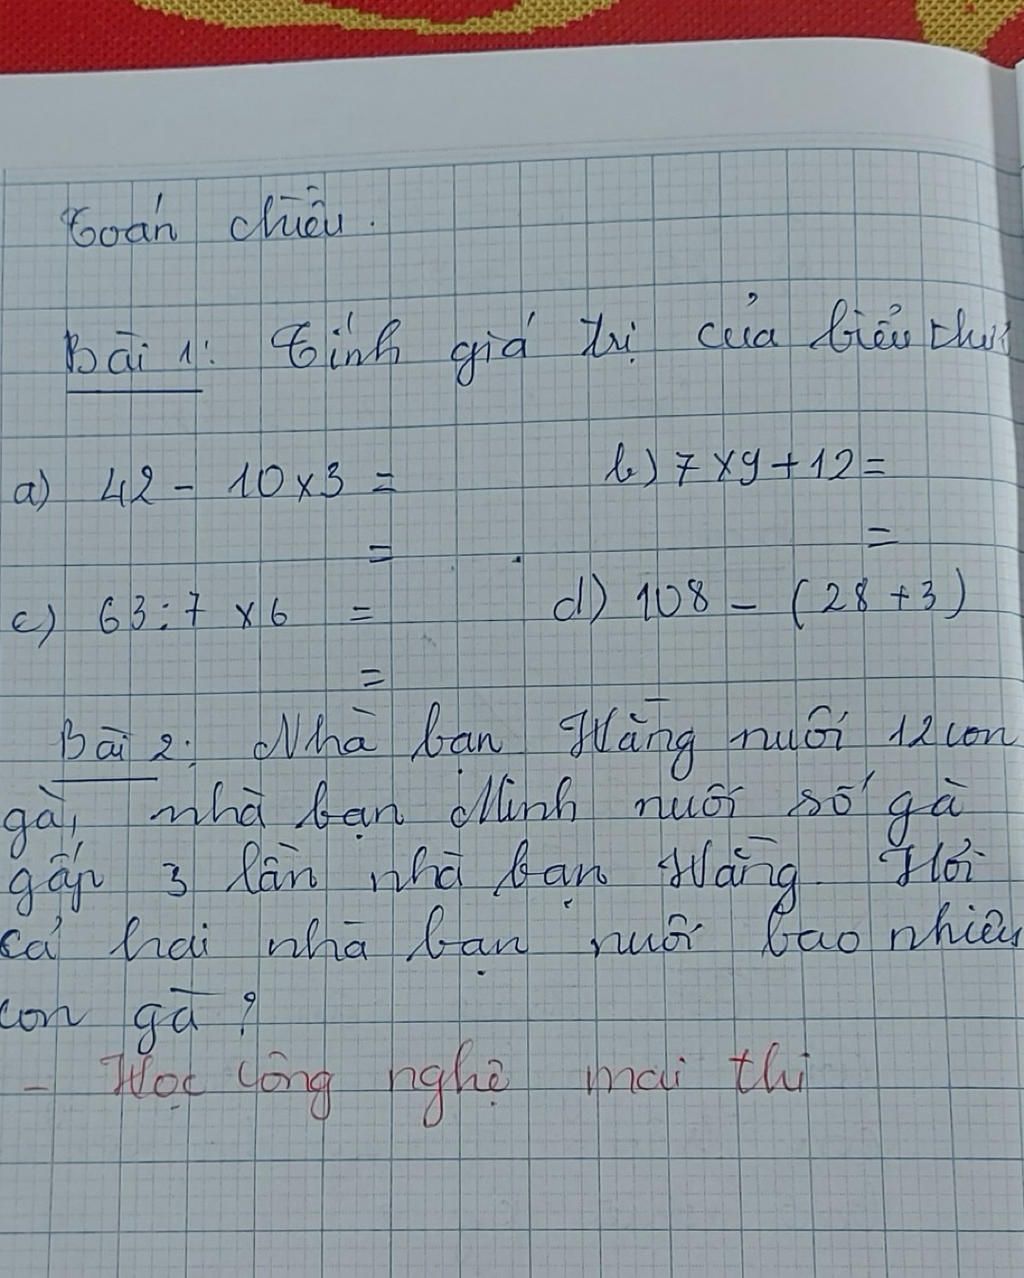 Toán chiều.
Bài 1: Tính giá trị của biểu thức
a) 42 - 10 x 3 =
b) 7 x 9 + 12 =
=
=
c) 63 : 7 x 6 =
d) 108 - (28 + 3)
=
Bài 2: Nhà bạn Hằng nuôi 12 con
gà, nhà bạn Minh nuôi số gà
gấp 3 lần nhà bạn Hằng. Hỏi
cả hai nhà bạn nuôi bao nhiêu
con gà?
- Học công nghệ mai thi